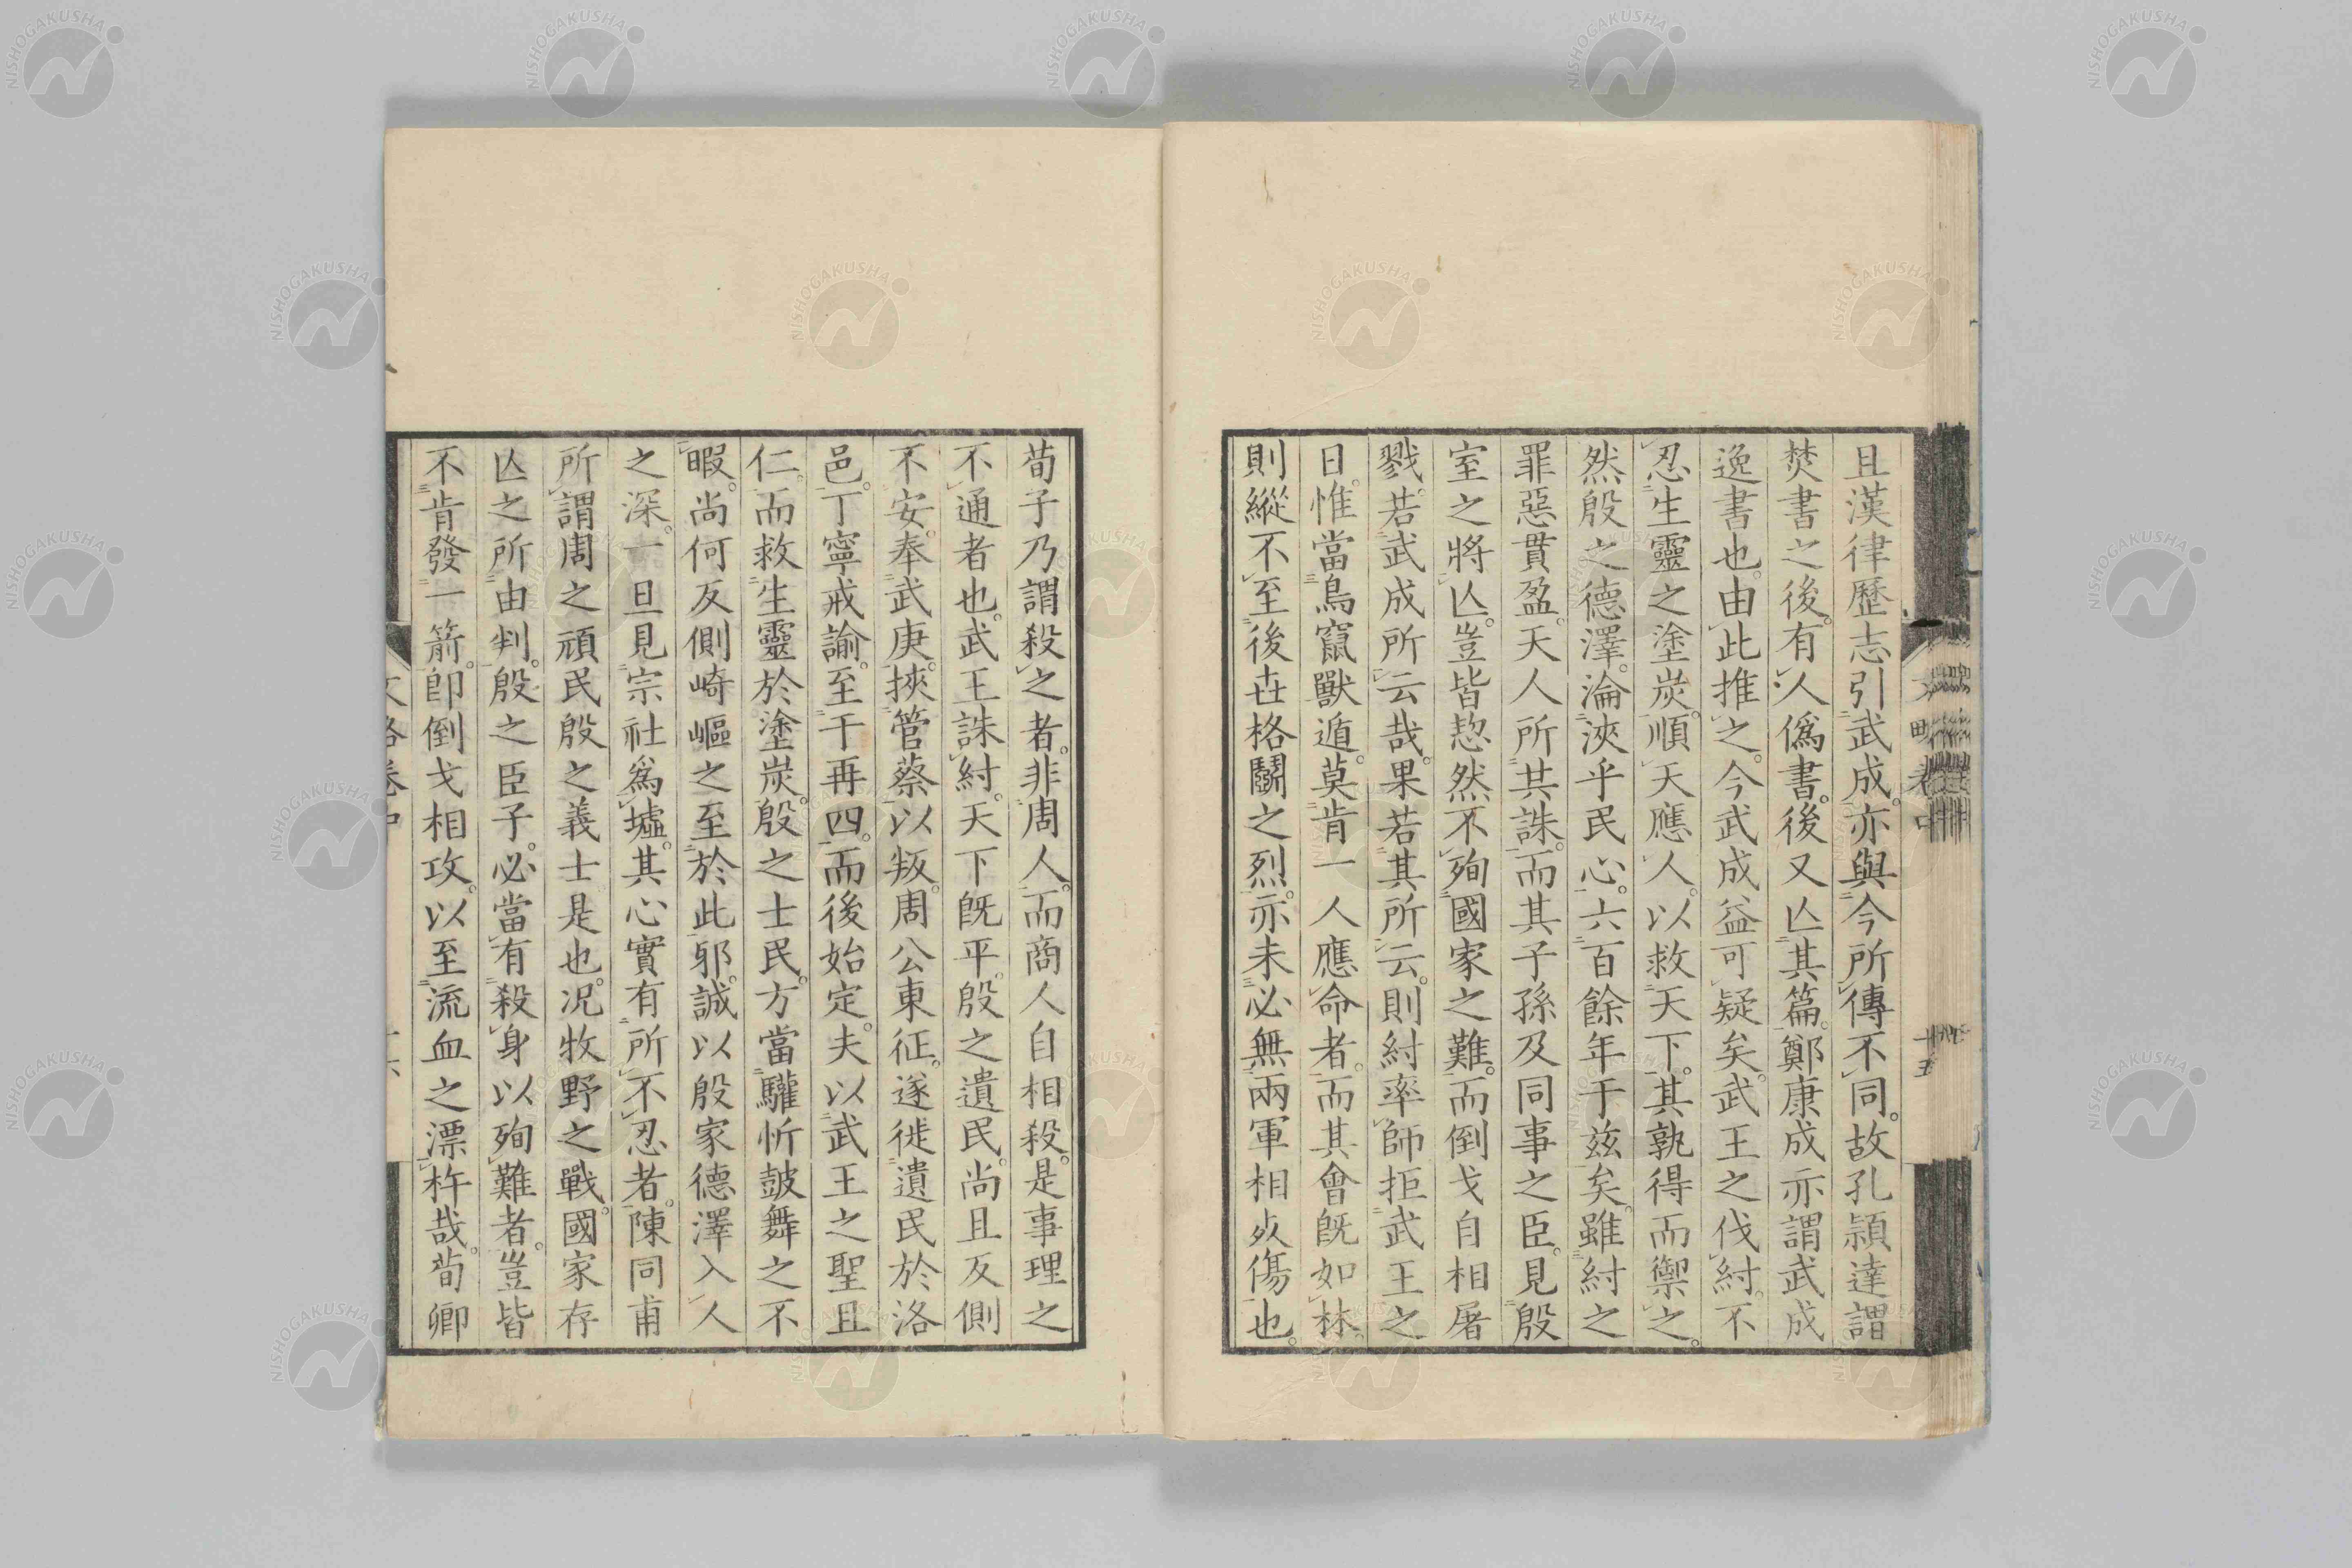 且漢律歷志引武成。亦與今所傳不同。故孔頴達謂
焚書之後。有人僞書。後又亾其篇。鄭康成亦謂武成
逸書也。由此推之。今武成益可疑矣。武王之伐紂。不
忍生靈之塗炭。順天應人。以救天下。其孰得而禦之。
然殷之德澤。淪浹乎民心。六百餘年于兹矣。雖紂之
罪惡貫盈。天人所共誅。而其子孫及同事之臣。見殷
室之將亾。豈皆恝然不殉國家之難。而倒戈自相屠
戮。若武成所云哉。果若其所云。則紂率師拒武王之
日。惟當鳥竄獸遁。莫肯一人應命者。而其會旣如林。
則縱不至後世格鬭之烈。亦未必無兩軍相夊傷也。
荀子乃謂殺之者。非周人。而商人自相殺。是事理之
不通者也。武王誅紂。天下旣平。殷之遺民。尚且反側
不安。奉武庚。挾管蔡以叛。周公東征。遂徙遺民於洛
邑。丁寧戒諭。至于再四。而後始定。夫以武王之聖且
仁。而救生靈於塗炭。殷之士民。方當驩忻鼓舞之不
暇。尚何反側崎嶇之至於此邪。誠以殷家德澤入人
之深。一旦見宗社爲墟。其心實有所不忍者。陳同甫
所謂周之頑民殷之義士是也。况牧野之戰。國家存
亾之所由判。殷之臣子。必當有殺身以殉難者。豈皆
不肯發一箭。卽倒戈相攻。以至流血之漂杵哉。荀卿
NISHOGAKUSHA